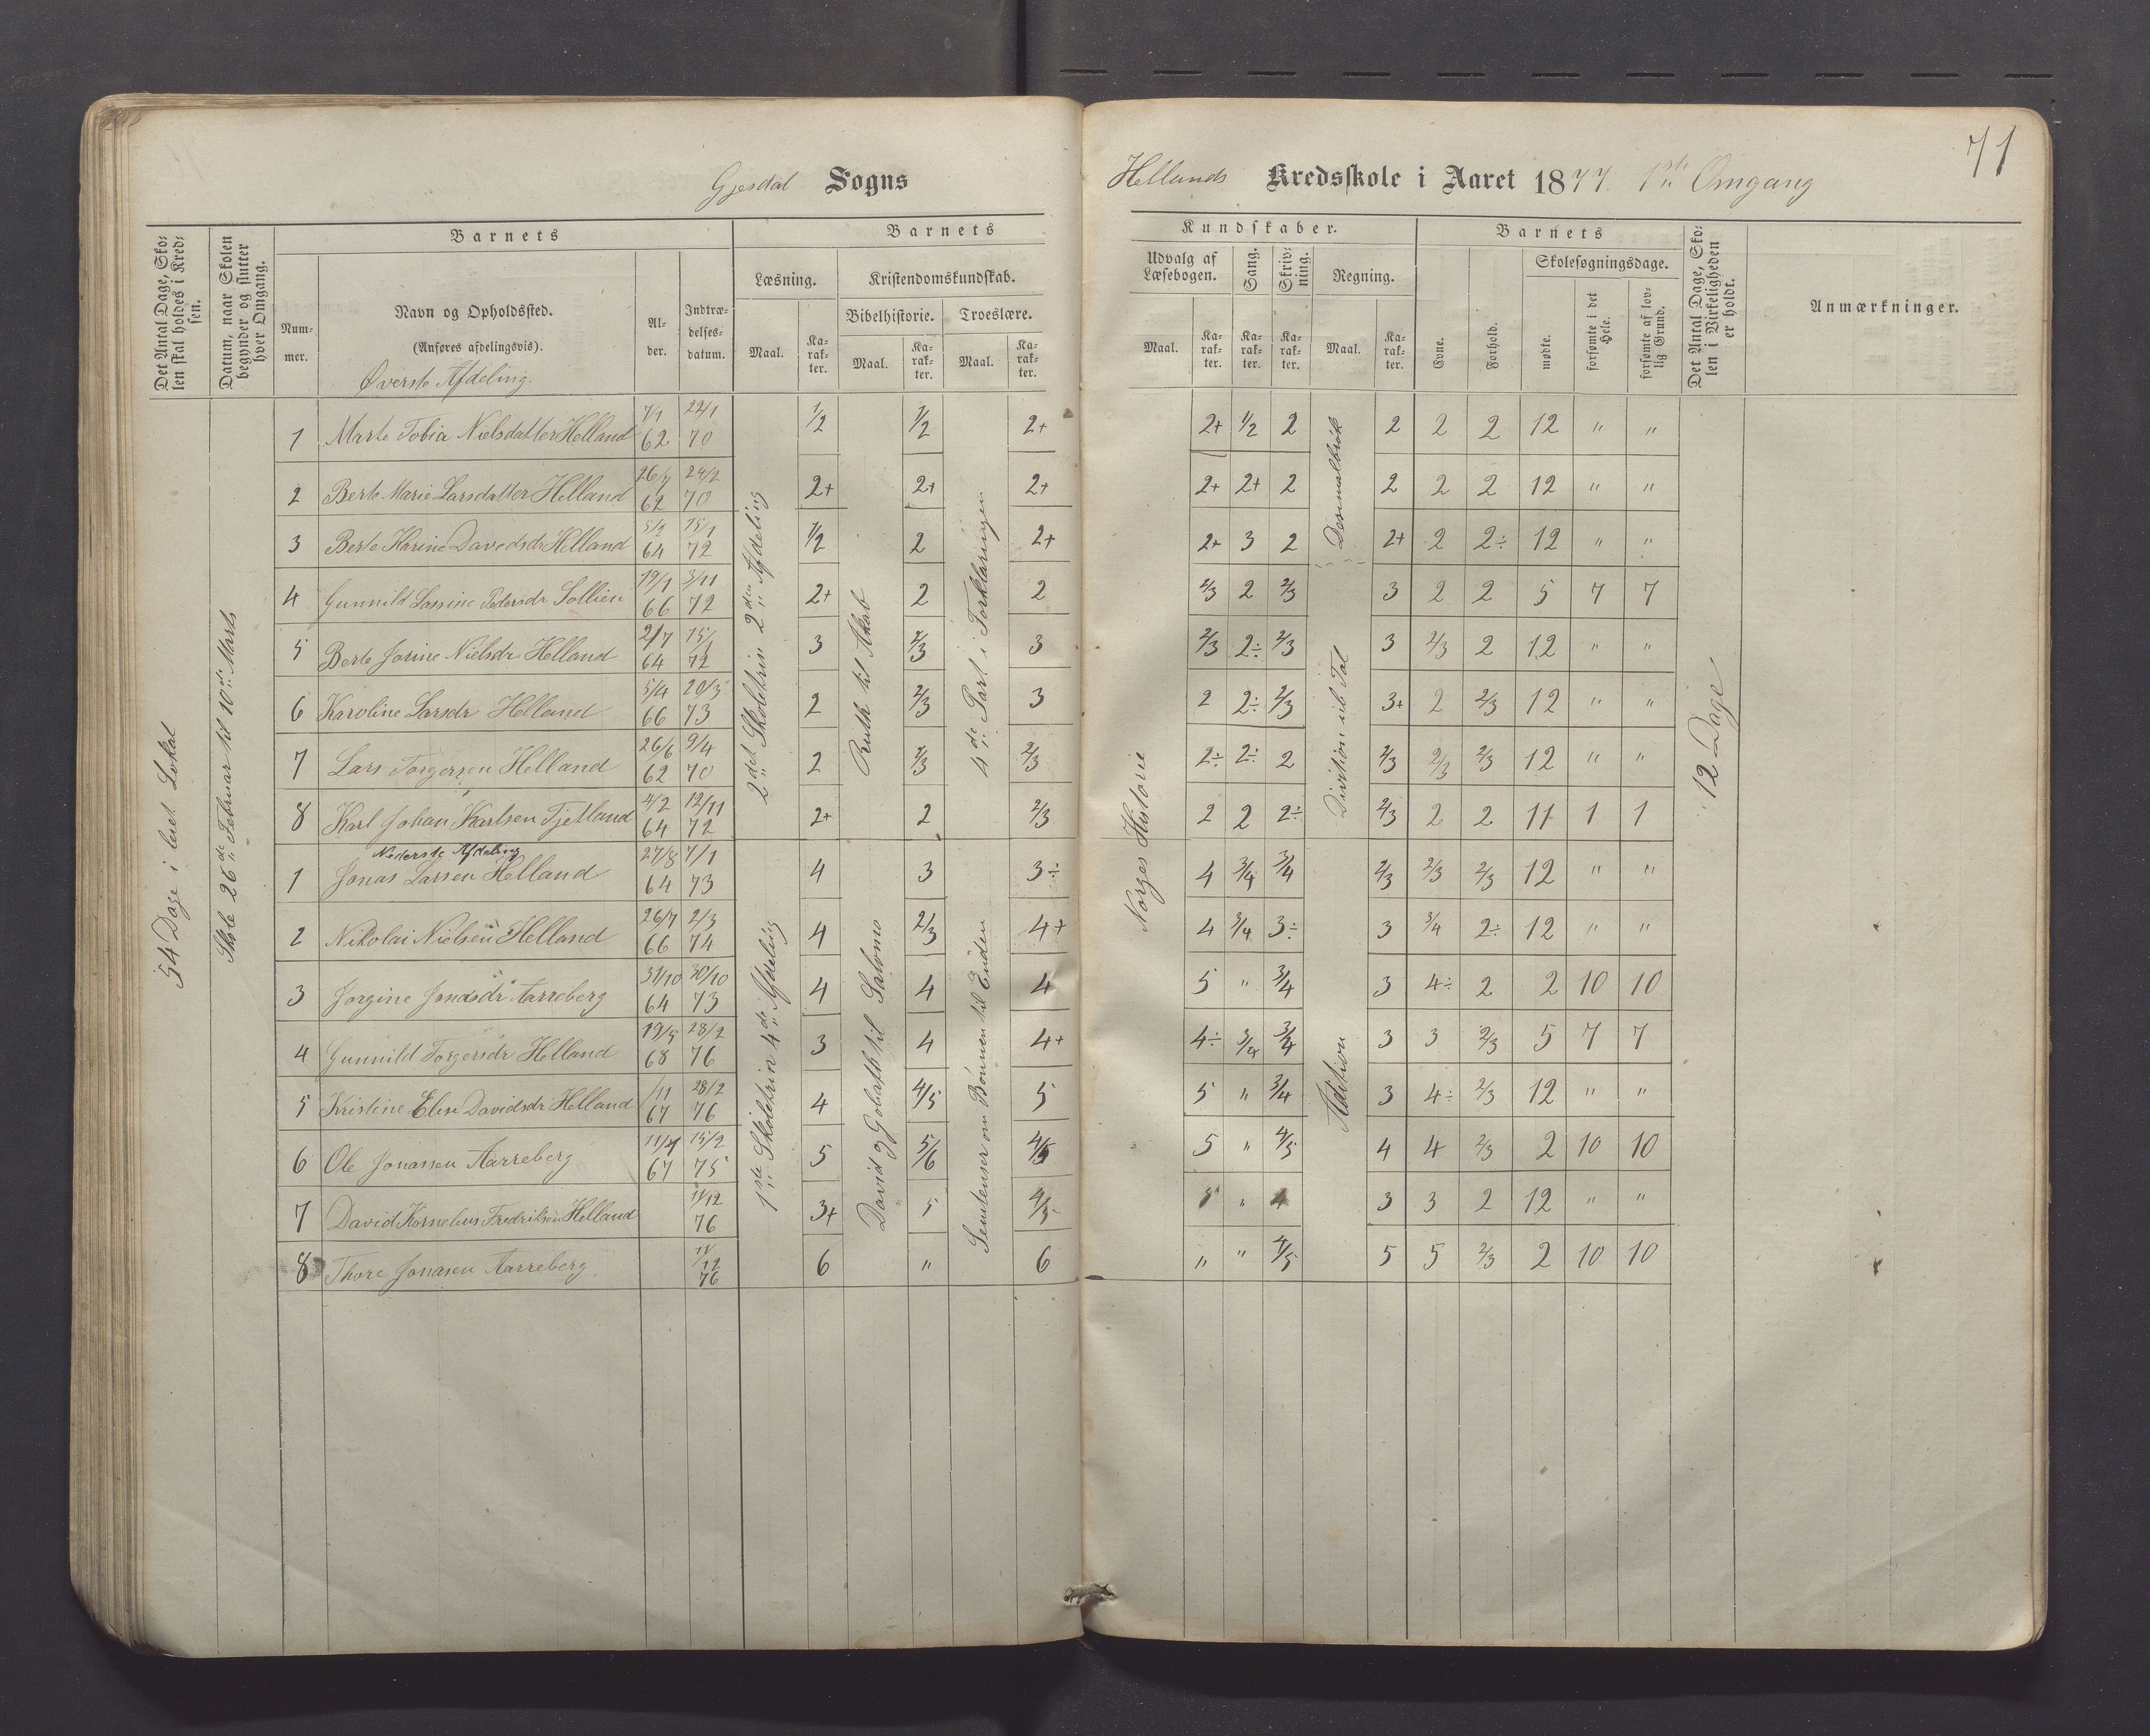 71
Gjesdal Sogns Hellands Kredsskole i Aaret 1877. 1ste Omgang
Det Antal Dage, Skolen skal holdes i Kredsen.
Datum, naar Skolen begynder og slutter hver Omgang.
Barnets
Nummer.
Navn og Opholdssted.
(Anføres afdelingsvis).
Øverste Afdeling.
Alder.
Indtrædelsesdatum.
Barnets Kundskaber.
Læsning.
Maal.
Karakter.
Kristendomskundskab.
Bibelhistorie.
Maal.
Karakter.
Troeslære.
Maal.
Karakter.
Udvalg af Læsebogen.
Maal.
Karakter.
Sang.
Karakter.
Skrivning.
Karakter.
Regning.
Maal.
Karakter.
Barnets
Evne.
Forhold.
Skolesøgningsdage.
mødte.
forsømte i det Hele.
forsømte af lovlig Grund.
Det Antal Dage, Skolen i Virkeligheden er holdt.
Anmærkninger.
54 Dage i leiet Lokal
Skole 26de Februar til 10de Marts
2det Skoletrin 2den Afdeling
Ruth til Akab
4de Part i Forklaringen
Norges Historie
Desimalbrøk
Division i hele Tal
12 Dage
1 Marte Tobia Nielsdatter Helland 7/1 62 22/1 70 1/2 1/2 2+ 2+ 1/2 2 2 2 2 12 " "
2 Berte Marie Larsdatter Helland 26/7 62 24/2 70 2+ 2+ 2+ 2+ 2+ 2 2 2 2 12 " "
3 Berte Karine Davidsdr Helland 5/2 64 15/1 72 1/2 2 2+ 2+ 3 2 2+ 2 2÷ 12 " "
4 Gunnild Lassine Pedersdr Sollien 19/1 66 3/11 72 2+ 2 2 2/3 2 2/3 3 2 2 5 7 7
5 Berte Jorine Nielsdr Helland 2/7 64 15/1 72 3 2/3 3 2/3 2÷ 2/3 3 2/3 2 12 " "
6 Karoline Larsdr Helland 5/4 66 20/3 73 2 2/3 3 2 2÷ 2/3 3+ 2 2/3 12 " "
7 Lars Torgersen Helland 26/6 62 9/4 70 2 2/3 2/3 2÷ 2÷ 2 2/3 2/3 2/3 12 " "
8 Karl Johan Karlsen Fjetland 4/2 64 12/11 72 2+ 2 2/3 2 2 2÷ 2/3 2 2 11 1 1
Nederste Afdeling
1ste Skoletrin 4de Afdeling
David og Goliath til Salomo
Sentenser om Bønnen til Enden
Addition
1 Jonas Larsen Helland 27/8 64 7/1 73 4 3 3÷ 4 3/4 3/4 2/3 2/3 2/3 12 " "
2 Nikolai Nielsen Helland 26/7 66 2/3 74 4 2/3 4+ 4 3/4 3÷ 3 3/4 2÷ 12 " "
3 Jorgine Jonasdr Aarreberg 31/10 64 30/10 73 4 4 4 5 " 3/4 3 4÷ 2 2 10 10
4 Gunnild Torgersdr Helland 19/5 68 28/2 76 3 4 4+ 4÷ 3/4 3/4 3 3 2/3 5 7 7
5 Kristine Elise Davidsdr Helland /11 67 28/2 76 4 4/5 5 5 " 3/4 3 4÷ 2/3 12 " "
6 Ole Jonassen Aarreberg 11/4 67 15/2 75 5 5/6 4/5 5 " 4/5 4 4 2/3 2 10 10
7 David Kornelius Fredriksen Helland 11/12 76 3+ 5 4/5 5 " 4 3 3 2 12 " "
8 Thore Jonasen Aarreberg 11/12 76 6 " 6 " " 4/5 5 5 2/3 2 10 10